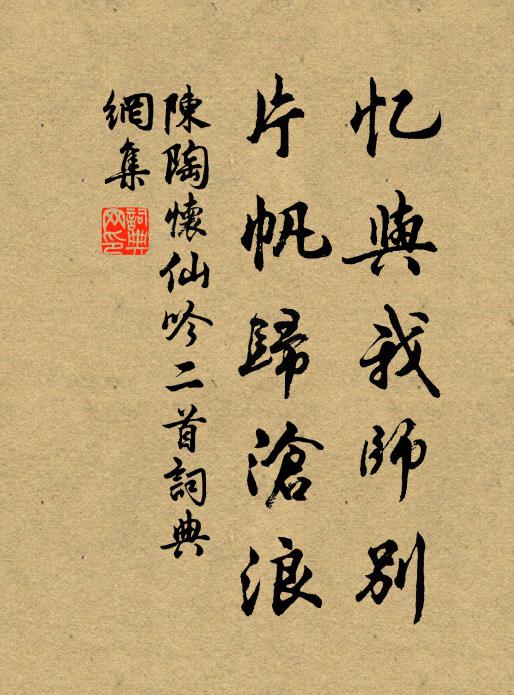 忆與我師別
片帆歸滄浪
陳陶懷仙吟二首詞典
網集
詞典
网印